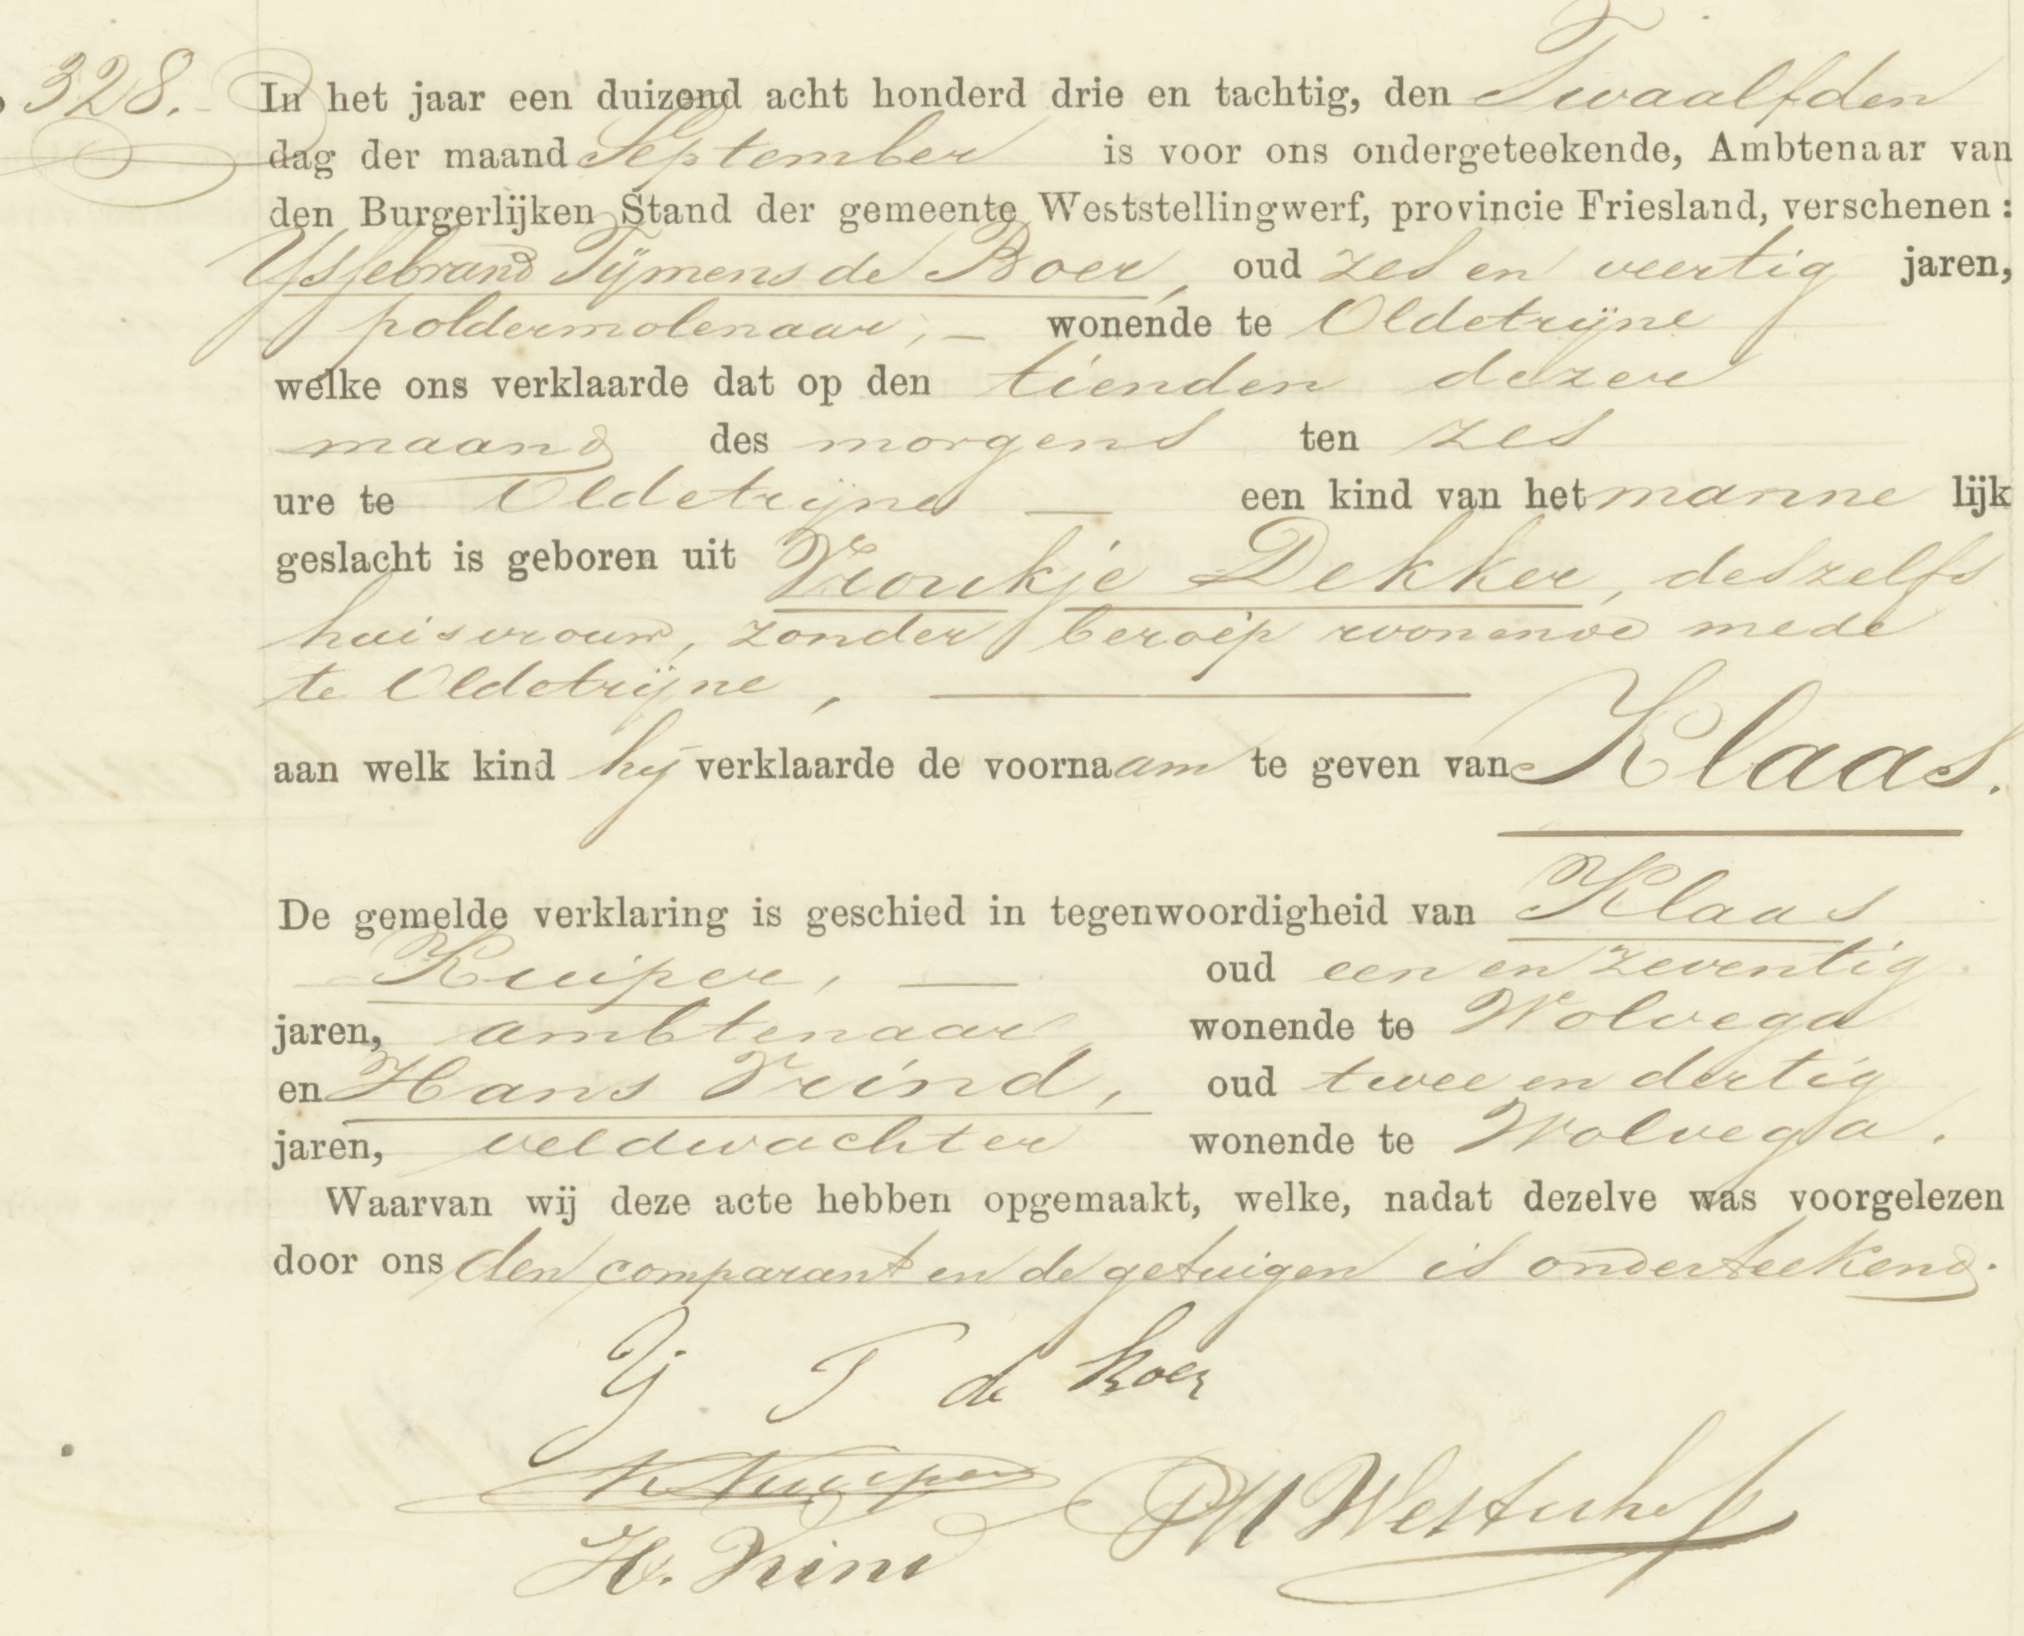 328. In het jaar een duizend acht honderd drie en tachtig, den Twaalfden
dag der maand September is voor ons ondergeteekende, Ambtenaar van
den Burgerlijken Stand der gemeente Weststellingwerf, provincie Friesland, verschenen:
IJssebrand Tijmens de Boer, oud zes en veertig jaren,
poldermolenaar, — wonende te Oldetrijne
welke ons verklaarde dat op den tienden dezer
maand des morgens ten zes
ure te Oldetrijne — een kind van het mannelijk
geslacht is geboren uit Vroukje Dekker, deszelfs
huisvrouw, zonder beroep wonende mede
te Oldetrijne, —
aan welk kind hij verklaarde de voornaam te geven van Klaas.
De gemelde verklaring is geschied in tegenwoordigheid van Klaas
Kuiper, — oud een en zeventig
jaren, ambtenaar wonende te Wolvega
en Hans Vrind, oud twee en dertig
jaren, veldwachter wonende te Wolvega.
Waarvan wij deze acte hebben opgemaakt, welke, nadat dezelve was voorgelezen
door ons den comparant en de getuigen is onderteekend.
IJ T de Boer
K Kuiper
H. Vrind PM Westerhof